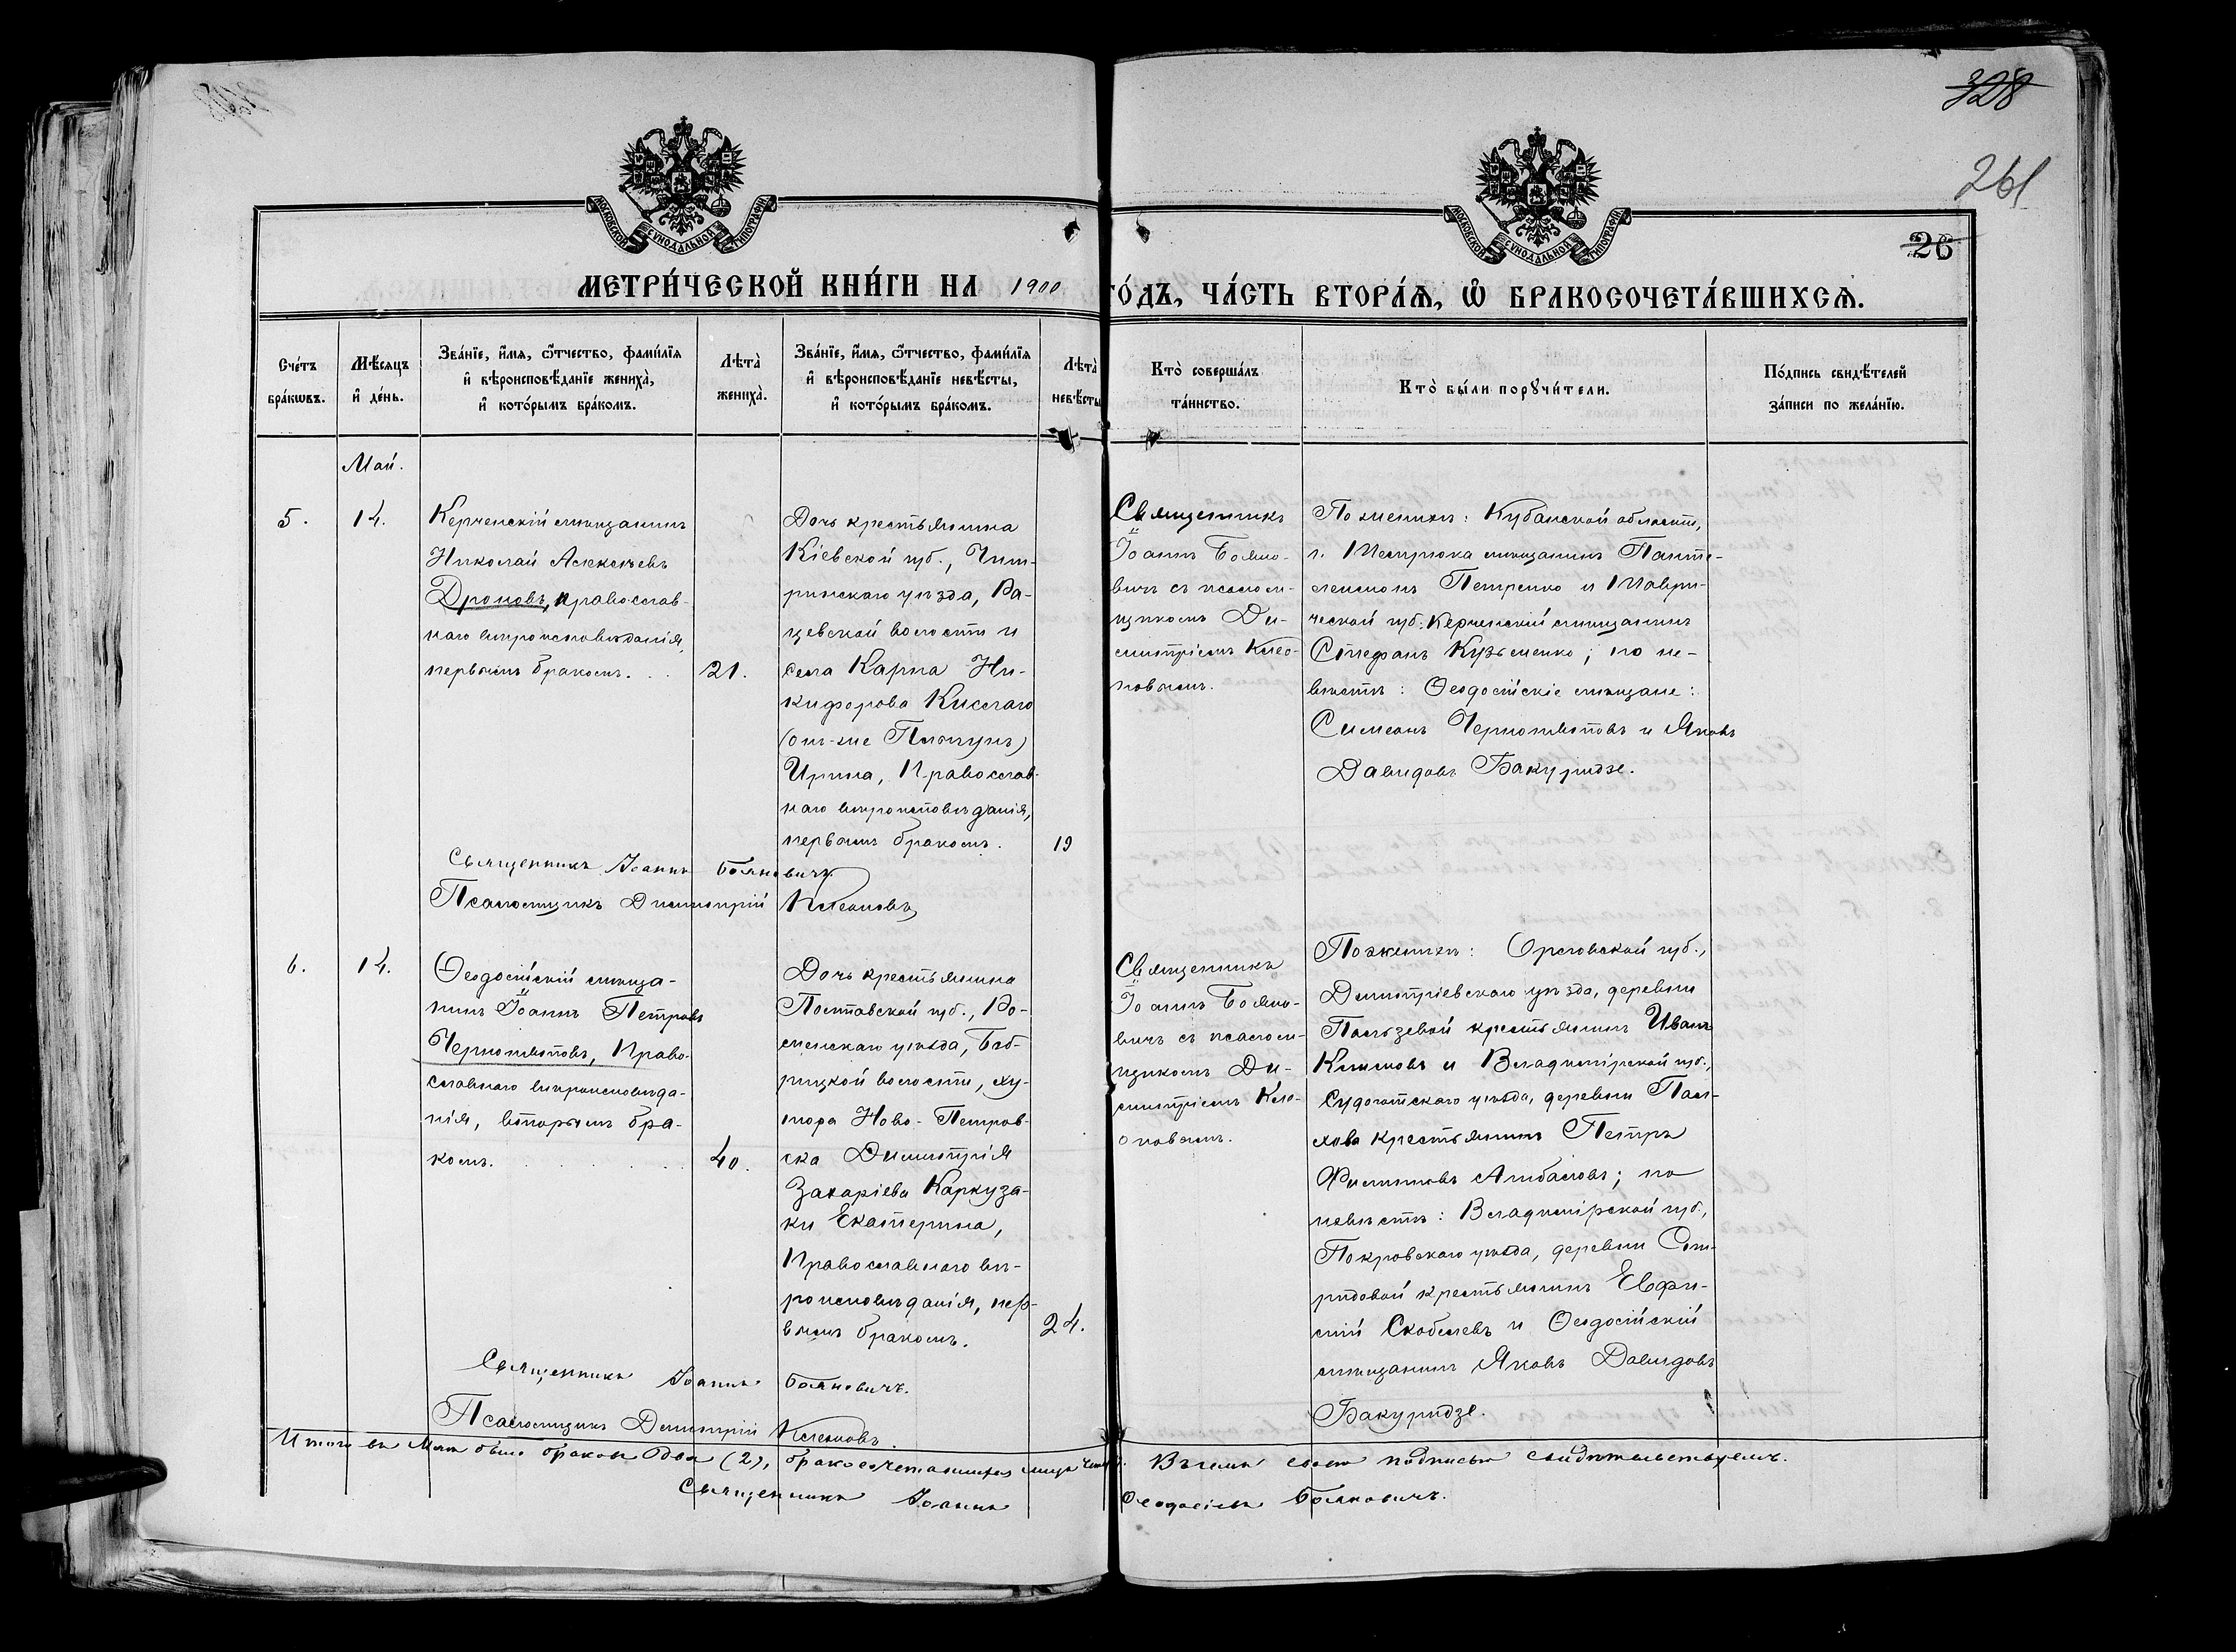 328
261
26
МОСКОВСКОЙ СУНОДАЛЬНОЙ ТИПОГРАФІИ
МОСКОВСКОЙ СУНОДАЛЬНОЙ ТИПОГРАФІИ
МЕТРИ́ЧЕСКОЙ КНИ́ГИ НА 1900 ГО́ДЪ, ЧА́СТЬ ВТОРА́Ѧ, Ѡ҆ БРАКОСОЧЕТА́ВШИХСѦ.
Сче́тъ
бра́кωвъ.
Мѣ́сяцъ
и҆ де́нь.
Зва́нїе, и҆́мя, ѻ҆́тчество, фами́лїя
и҆ вѣроисповѣ́данїе жениха̀,
и҆ кото́рымъ бра́комъ.
Лѣта̀
жениха̀.
Зва́нїе, и҆́мя, ѻ҆́тчество, фами́лїя
и҆ вѣроисповѣ́данїе невѣ́сты,
и҆ кото́рымъ бра́комъ.
Лѣта̀
невѣ́сты
Кто̀ соверша́лъ
та́инство.
Кто̀ бы́ли порꙋчи́тели.
По́дпись свидѣ́телей
за́писи по жела́нїю.
Май.
5.
14.
Керченскій мѣщанинъ
Николай Алексѣевъ
Дроновъ, православ-
наго вѣроисповѣданія,
первымъ бракомъ.
21.
Дочь крестьянина
Кіевской губ., Чиги-
ринскаго уѣзда, Ра-
цевской волости и
села Карпа Ни-
кифорова Кислаго
(онъ-же Плыгунъ)
Ирина, Православ-
наго вѣроисповѣданія,
первымъ бракомъ.
19
Священникъ
Іоаннъ Бояно-
вичъ съ псалом-
щикомъ Ди-
митріемъ Клео-
новымъ.
По женихѣ: Кубанской области,
г. Темрюка мѣщанинъ Панте-
леимонъ Петренко и Таври-
ческой губ. Керченскій мѣщанинъ
Стефанъ Кузьменко; по не-
вѣстѣ: Ѳеодосійскіе мѣщане:
Симеонъ Чернопятовъ и Яковъ
Давидовъ Бакуридзе.
Священникъ Іоаннъ Бояновичъ
Псаломщикъ Димитрій Клеоновъ
6.
14.
Ѳеодосійскій мѣща-
нинъ Іоаннъ Петровъ
Чернопятовъ, Право-
славнаго вѣроисповѣда-
нія, вторымъ бра-
комъ.
40.
Дочь крестьянина
Полтавской губ., Ро-
менскаго уѣзда,
волости, ху-
тора Ново-Петров-
ска Димитрія
Захаріева Каркуза-
ки Екатерина,
Православнаго вѣ-
роисповѣданія, пер-
вымъ бракомъ.
24.
Священникъ
Іоаннъ Бояно-
вичъ съ псалом-
щикомъ Ди-
митріемъ Кле-
оновымъ.
По женихѣ: Орловской губ.,
Димитріевскаго уѣзда, деревни
Пользевой крестьянинъ Иванъ
Климовъ и Владимірской губ.,
Судоготскаго уѣзда, деревни Пал-
хова крестьянинъ Петръ
Филипповъ Алибаловъ; по
невѣстѣ: Владимірской губ.,
Покровскаго уѣзда, деревни
крестьянинъ Евфи-
мій Скобелевъ и Ѳеодосійскій
мѣщанинъ Яковъ Давидовъ
Бакуридзе.
Священникъ Іоаннъ Бояновичъ.
Псаломщикъ Димитрій Клеоновъ.
Итого въ Маѣ было браковъ Два (2), бракосочетавшихся лицъ В чемъ своею подписью свидѣтельствуемъ.
Священникъ Іоаннъ Ѳеодосіевъ Бояновичъ.